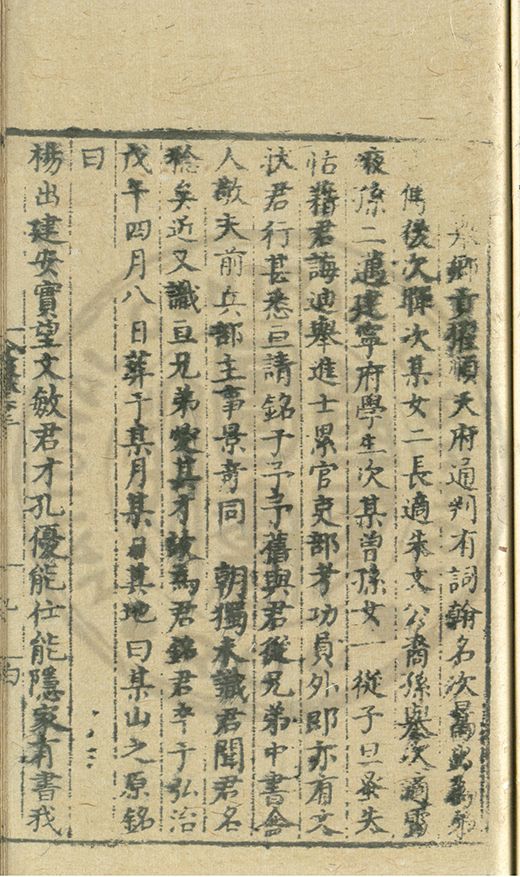 鄉貢擢順天府通判有詞翰名次暠出為弟
儁後次驛次某女二長適朱文公裔孫㙯次適雷
孫二邁建寧府學生次某曾孫女一從子旦蚤失
怙藉君誨迪舉進士累官吏部考功員外郎亦有文
狀君行甚悉旦請銘于予予舊與君從兄弟中書舍
人敬夫前兵部主事景奇同朝獨未識君聞君名
稔矣近又識旦兄弟愛其才誼為君銘君卒于弘治
戊午四月八日葬于某月某日其地曰某山之原銘
曰
楊出建安實望文敏君才孔優能仕能隱家有書我